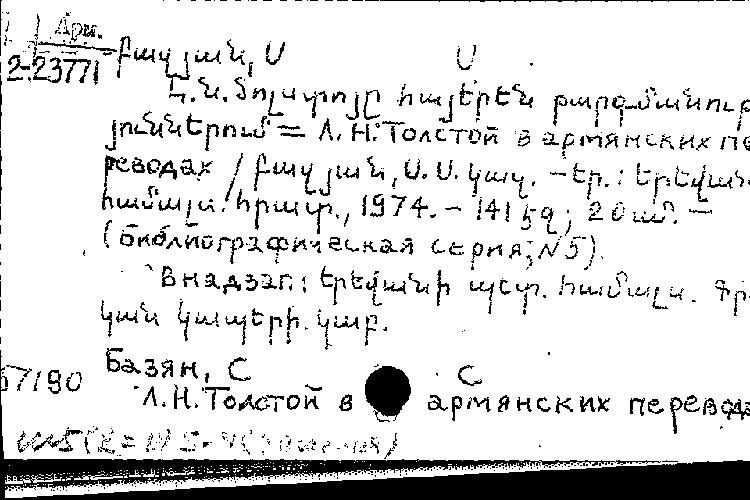 Арм.
2-23771
Բազյան, Ս Ս
Լ.Ն. Տոլստոյը հայերեն թարգմանութ
յուններում = Л.Н.Толстой в армянских пе
реводах / Բազյան, Ս.Ս. կազ. – Եր.: Երևան
համալս. հրատ., 1974. – 141 էջ; 20 սմ. –
(Библиографическая серия; №5).
В надзаг.: Երևանի պետ. համալս. Ֆր
կան կապերի կաբ.
Базян, С С
57190
Л.Н.Толстой в армянских перевода